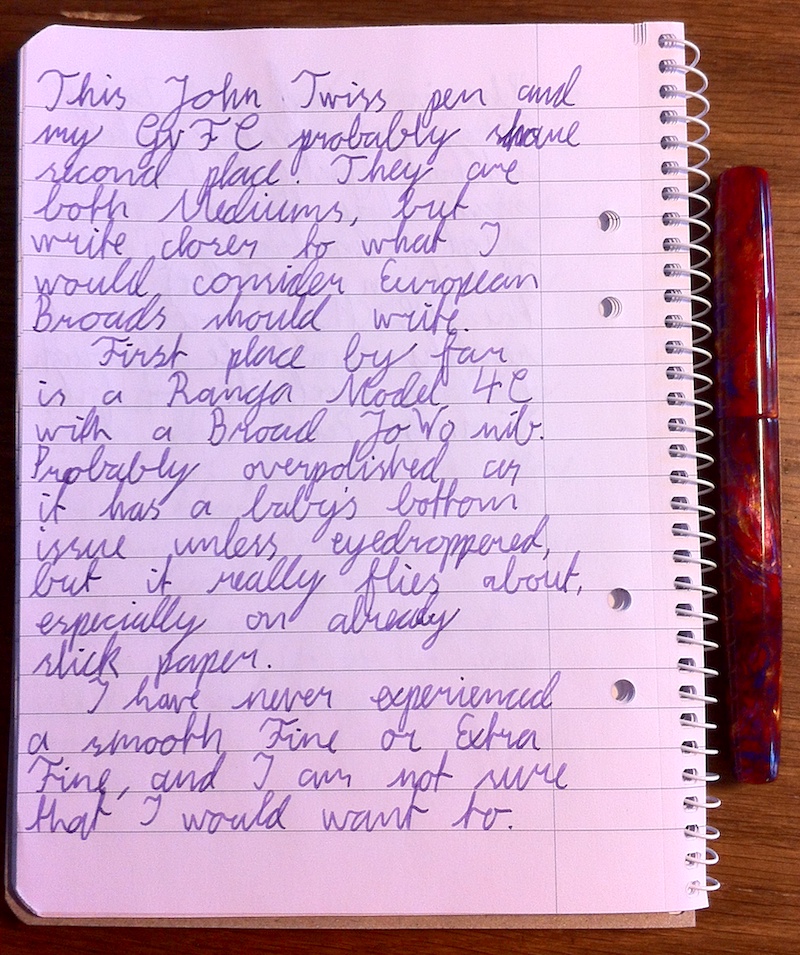 This John Twiss pen and
my GvFC probably share
second place. They are
both Mediums, but
write closer to what I
would consider European
Broads should write.
First place by far
is a Ranga Model 4C
with a Broad JoWo nib.
Probably overpolished as
it has a baby's bottom
issue unless eyedroppered,
but it really flies about,
especially on already
slick paper.
I have never experienced
a smooth Fine or Extra
Fine, and I am not sure
that I would want to.